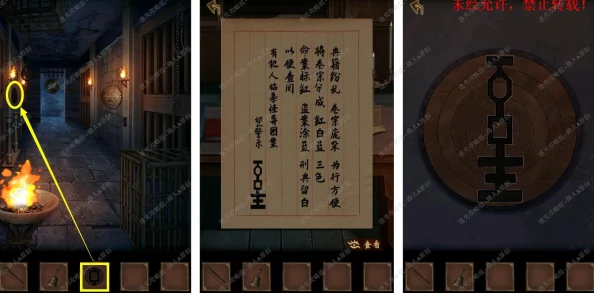 典籍纷乱 卷宗庞杂 为行方便
将卷宗分成 红白蓝 三色
命案标红 盗案涂蓝 刑典留白
以便查阅
有犯人临摹怪异图案
望警示
查看
未经允许，禁止转载！